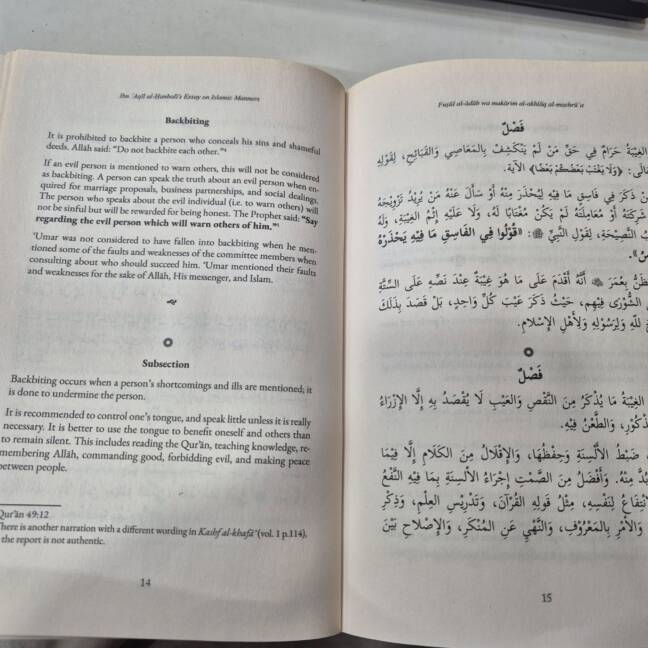 Ibn ʿAqīl al-Ḥanbalī's Essay on Islamic Manners
Backbiting
It is prohibited to backbite a person who conceals his sins and shameful
deeds. Allāh said: “Do not backbite each other.”⁸
If an evil person is mentioned to warn others, this will not be considered
as backbiting. A person can speak the truth about an evil person when en-
quired for marriage proposals, business partnerships, and social dealings.
The person who speaks about the evil individual (i.e. to warn others) will
not be sinful but will be rewarded for being honest. The Prophet said: “Say
regarding the evil person which will warn others of him.”⁹
ʿUmar was not considered to have fallen into backbiting when he men-
tioned some of the faults and weaknesses of the committee members when
consulting about who should succeed him. ʿUmar mentioned their faults
and weaknesses for the sake of Allāh, His messenger, and Islam.
Subsection
Backbiting occurs when a person's shortcomings and ills are mentioned; it
is done to undermine the person.
It is recommended to control one's tongue, and speak little unless it is really
necessary. It is better to use the tongue to benefit oneself and others than
to remain silent. This includes reading the Qurʾān, teaching knowledge, re-
membering Allāh, commanding good, forbidding evil, and making peace
between people.
Qurʾān 49:12
There is another narration with a different wording in Kashf al-khafāʾ (vol. 1 p.114),
the report is not authentic.
14
Fuṣūl al-ādāb wa makārim al-akhlāq al-mashrūʿa
فَصْلٌ
الغِيبَةُ حَرَامٌ فِي حَقِّ مَنْ لَمْ يَنْكَشِفْ بِالمَعَاصِي وَالقَبَائِحِ، لِقَوْلِهِ
تَعَالَى: ﴿وَلَا يَغْتَبْ بَعْضُكُمْ بَعْضًا﴾ الآيَة.
مَنْ ذَكَرَ فِي فَاسِقٍ مَا فِيهِ لِيُحْذَرَ مِنْهُ أَوْ سَأَلَ عَنْهُ مَنْ يُرِيدُ تَزْوِيجَهُ
شَرِكَتَهُ أَوْ مُعَامَلَتَهُ لَمْ يَكُنْ مُغْتَابًا لَهُ، وَلَا عَلَيْهِ إِثْمُ الغِيبَةِ، وَلَهُ
النَّصِيحَةِ، لِقَوْلِ النَّبِيِّ ﷺ: «قُولُوا فِي الفَاسِقِ مَا فِيهِ يَحْذَرْهُ
بِعُمَرَ أَنَّهُ أَقْدَمَ عَلَى مَا هُوَ غِيبَةٌ عِنْدَ نَصِّهِ عَلَى السِّتَّةِ
الشُّورَى فِيهِمْ، حَيْثُ ذَكَرَ عَيْبَ كُلِّ وَاحِدٍ، بَلْ قَصَدَ بِذَلِكَ
لِلَّهِ وَلِرَسُولِهِ وَلِأَهْلِ الإِسْلَامِ.
فَصْلٌ
الغِيبَةُ مَا يُذْكَرُ مِنَ النَّقْصِ وَالعَيْبِ لَا يُقْصَدُ بِهِ إِلَّا الإِزْرَاءُ
وَالطَّعْنُ فِيهِ.
ضَبْطُ الأَلْسِنَةِ وَحِفْظُهَا، وَالإِقْلَالُ مِنَ الكَلَامِ إِلَّا فِيمَا
بُدَّ مِنْهُ. وَأَفْضَلُ مِنَ الصَّمْتِ إِجْرَاءُ الأَلْسِنَةِ بِمَا فِيهِ النَّفْعُ
لِنَفْسِهِ، مِثْلُ قَوْلِهِ القُرْآنَ، وَتَدْرِيسِ العِلْمِ، وَذِكْرِ
وَالأَمْرِ بِالمَعْرُوفِ، وَالنَّهْيِ عَنِ المُنْكَرِ، وَالإِصْلَاحِ بَيْنَ
15